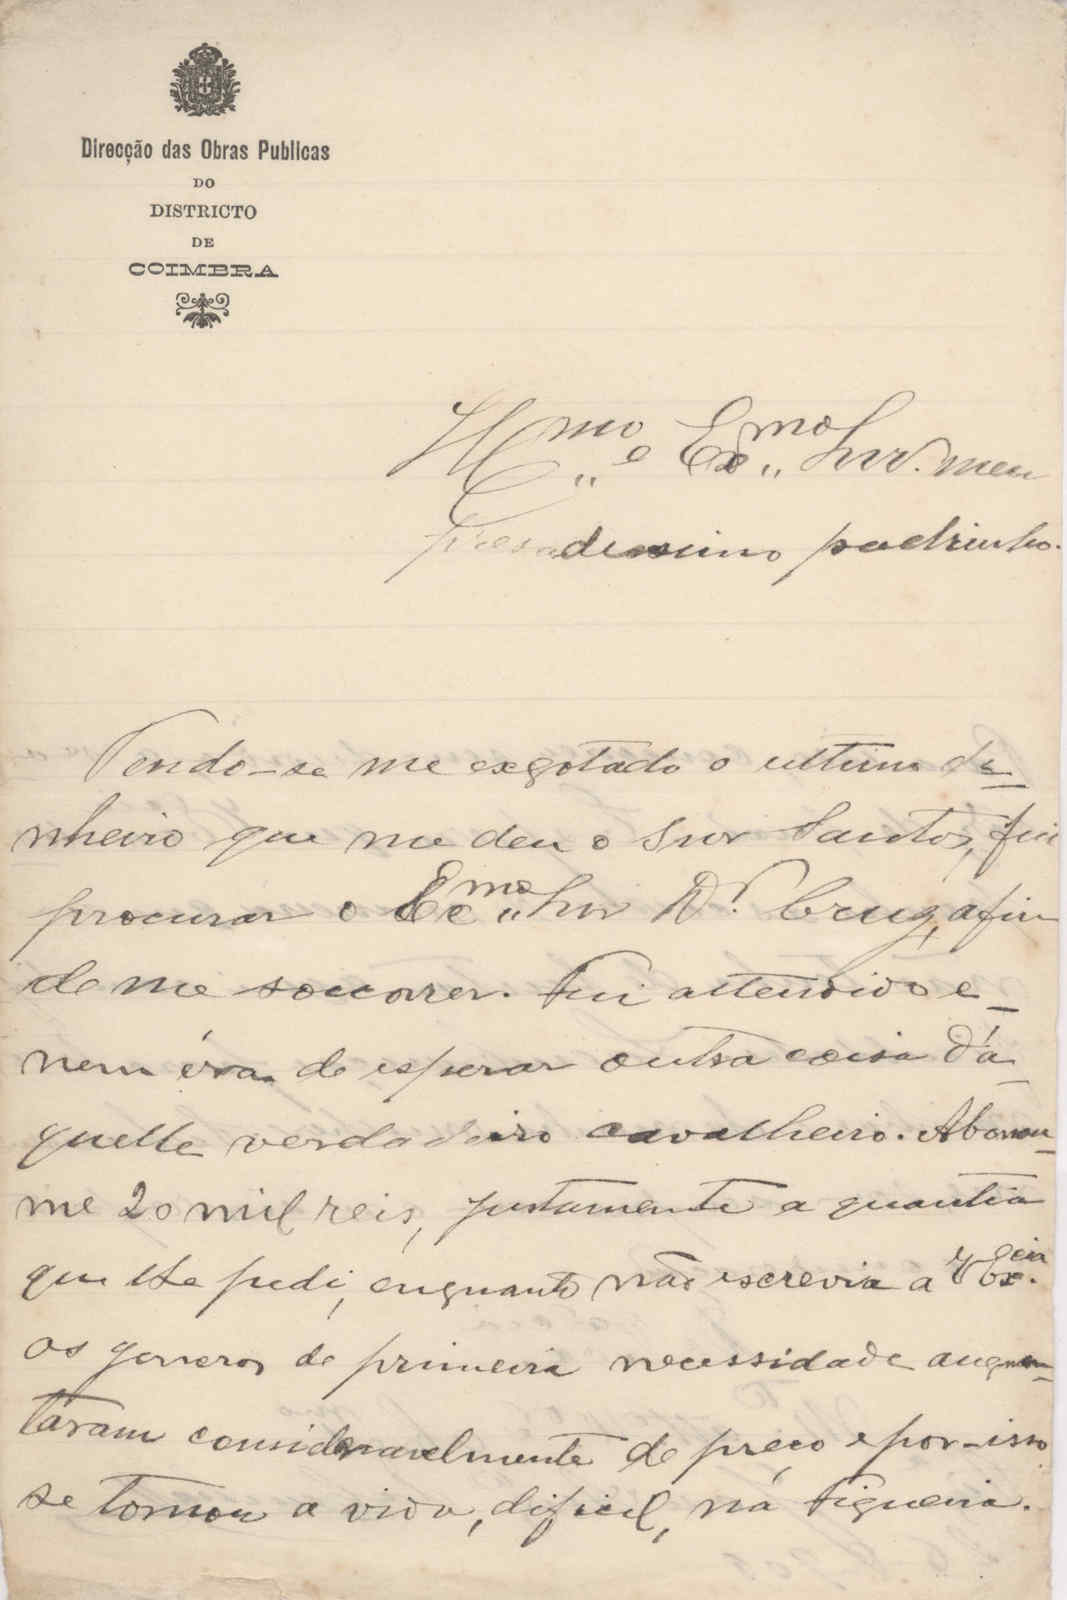 Direcção das Obras Publicas
DO
DISTRICTO
DE
COIMBRA
Ill.mo e Ex.mo Snr. meu
presadissimo padrinho.
Tendo-se me exgotado o ultimo di-
nheiro que me deu o Snr Santos, fui
procurar o Ex.mo Snr Dr. Cruz, afim
de me soccorrer. Fui attendido e-
nem éra de esperar outra coisa d'a-
quelle verdadeiro cavalheiro. Abonou-
me 20 mil reis, justamente a quantia
que lhe pedi, enquanto não escrevia a V. Ex.cia.
Os generos de primeira necessidade augmen-
táram consideravelmente de preço e por-isso
se tornou a vida, dificil, ná Figueira.